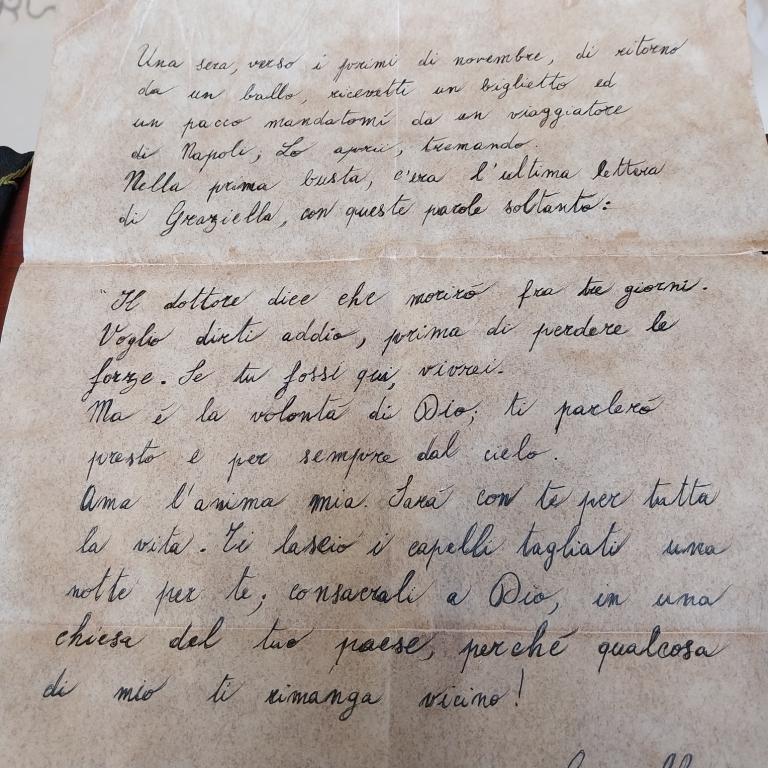 Una sera, verso i primi di novembre, di ritorno
da un ballo, ricevetti un biglietto ed
un pacco mandatomi da un viaggiatore
di Napoli; Lo aprii, tremando.
Nella prima busta, c'era l'ultima lettera
di Graziella, con queste parole soltanto:
"Il dottore dice che morirò fra tre giorni.
Voglio dirti addio, prima di perdere le
forze. Se tu fossi qui, vivrei.
Ma è la volontà di Dio; ti parlerò
presto e per sempre dal cielo.
Ama l'anima mia. Sarà con te per tutta
la vita. Ti lascio i capelli tagliati una
notte per te; consacrali a Dio, in una
chiesa del tuo paese, perché qualcosa
di mio ti rimanga vicino!